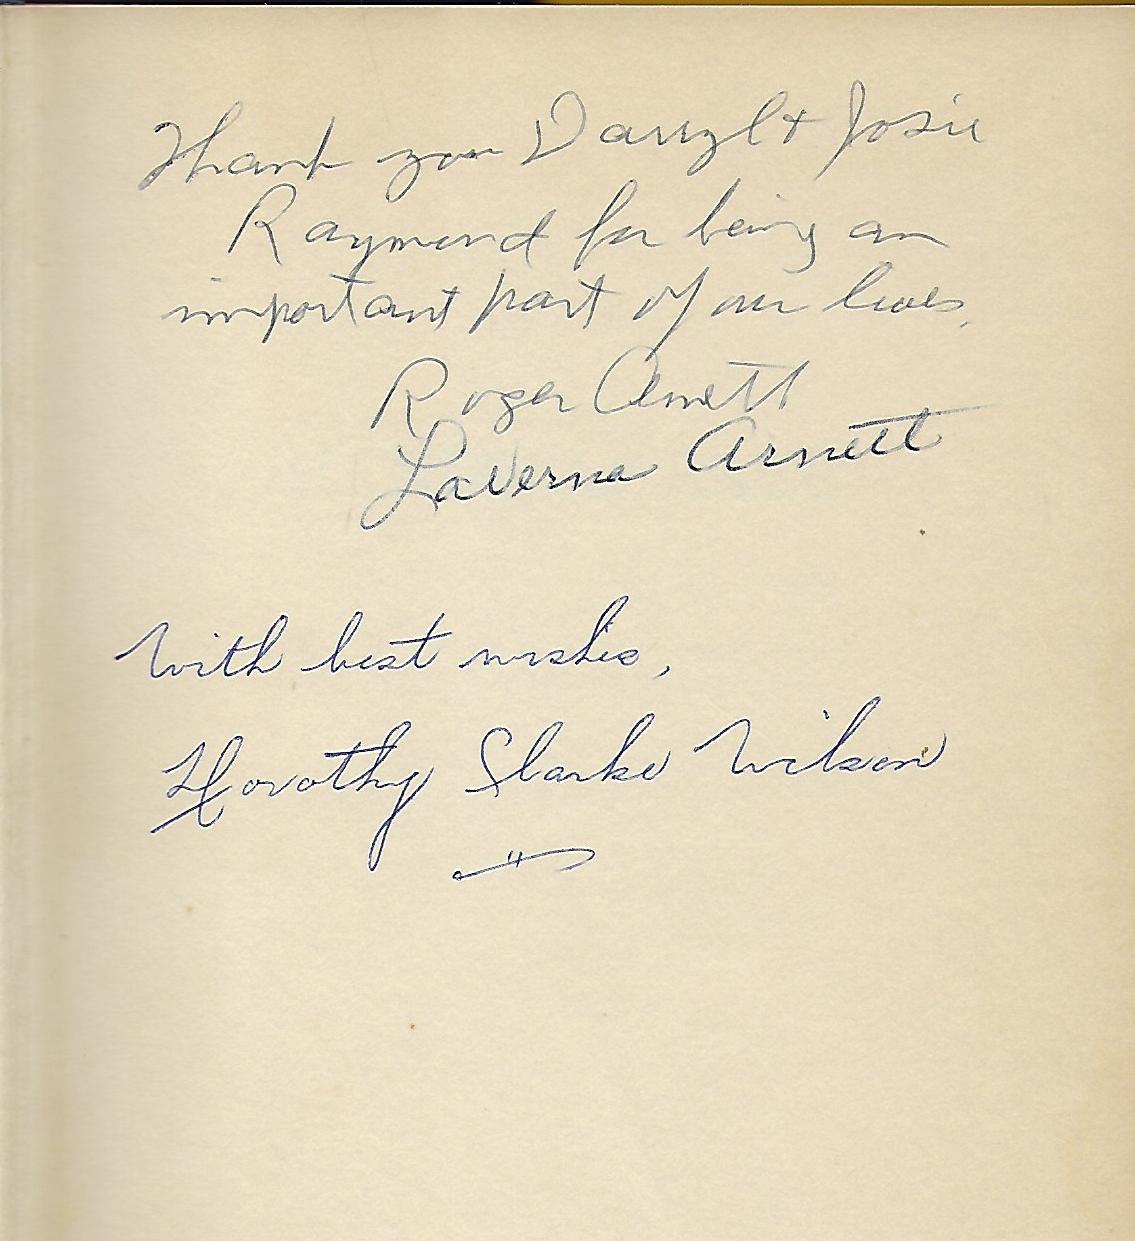 Thank you Darryl + Josie
Raymond for being an
important part of our lives.
Roger Arnett
LaVerna Arnett
With best wishes,
Dorothy Clarke Wilson